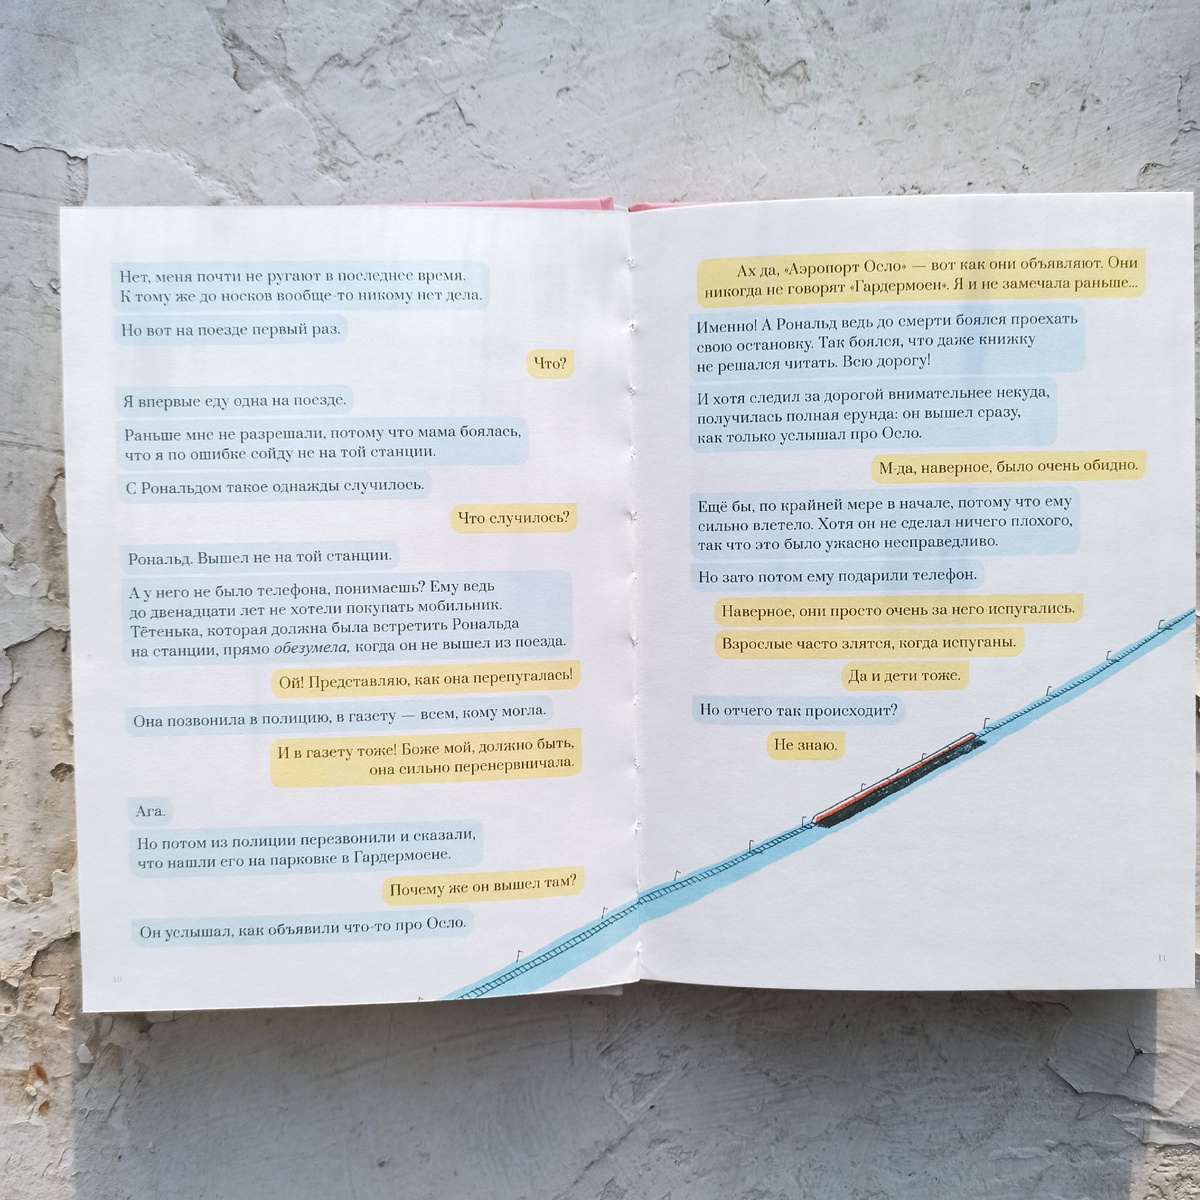 Нет, меня почти не ругают в последнее время.
К тому же до носков вообще-то никому нет дела.
Но вот на поезде первый раз.
Что?
Я впервые еду одна на поезде.
Раньше мне не разрешали, потому что мама боялась,
что я по ошибке сойду не на той станции.
С Рональдом такое однажды случилось.
Что случилось?
Рональд. Вышел не на той станции.
А у него не было телефона, понимаешь? Ему ведь
до двенадцати лет не хотели покупать мобильник.
Тётенька, которая должна была встретить Рональда
на станции, прямо обезумела, когда он не вышел из поезда.
Ой! Представляю, как она перепугалась!
Она позвонила в полицию, в газету — всем, кому могла.
И в газету тоже! Боже мой, должно быть,
она сильно перенервничала.
Ага.
Но потом из полиции перезвонили и сказали,
что нашли его на парковке в Гардермоене.
Почему же он вышел там?
Он услышал, как объявили что-то про Осло.
10
Ах да, «Аэропорт Осло» — вот как они объявляют. Они
никогда не говорят «Гардермоен». Я и не замечала раньше...
Именно! А Рональд ведь до смерти боялся проехать
свою остановку. Так боялся, что даже книжку
не решался читать. Всю дорогу!
И хотя следил за дорогой внимательнее некуда,
получилась полная ерунда: он вышел сразу,
как только услышал про Осло.
М-да, наверное, было очень обидно.
Ещё бы, по крайней мере в начале, потому что ему
сильно влетело. Хотя он не сделал ничего плохого,
так что это было ужасно несправедливо.
Но зато потом ему подарили телефон.
Наверное, они просто очень за него испугались.
Взрослые часто злятся, когда испуганы.
Да и дети тоже.
Но отчего так происходит?
Не знаю.
11